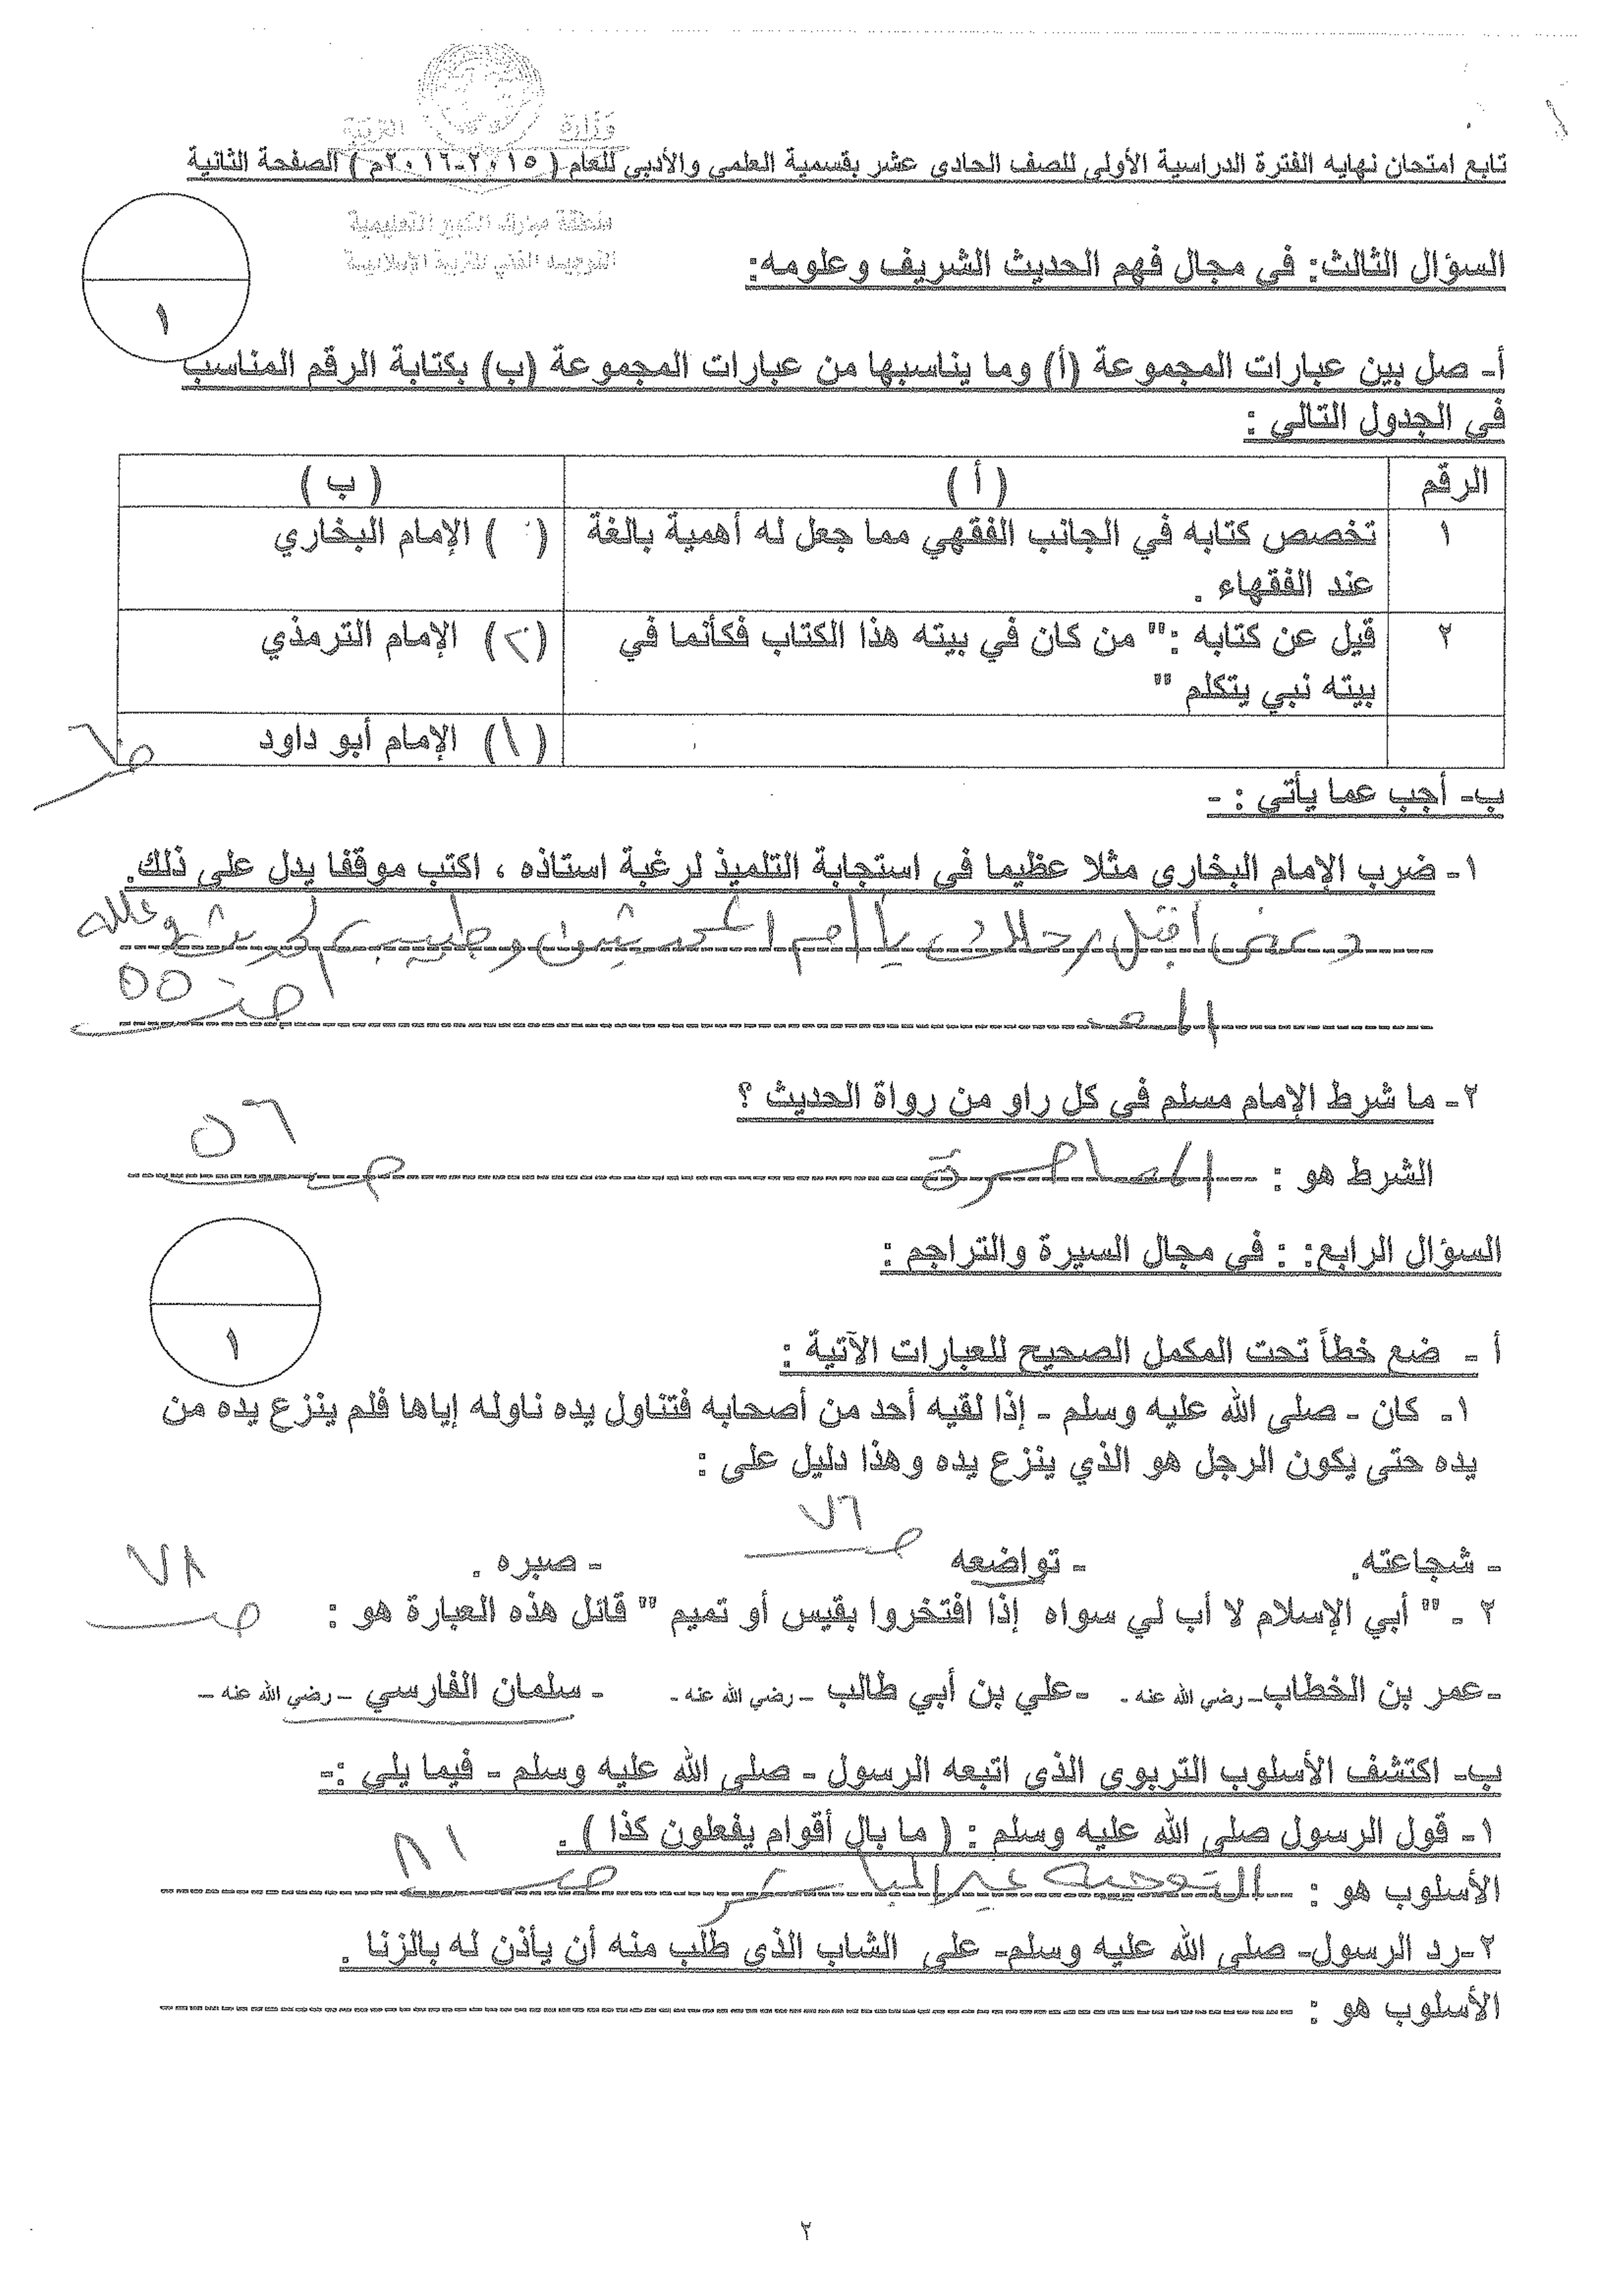 وزارة التربية
تابع امتحان نهايه الفترة الدراسية الأولى للصف الحادى عشر بقسمية العلمي والأدبي للعام ( ٢٠١٥-٢٠١٦م ) الصفحة الثانية
منطقة مبارك الكبير التعليمية
التوجيه الفني للتربية الإسلامية
السؤال الثالث: في مجال فهم الحديث الشريف وعلومه:
١
أ- صل بين عبارات المجموعة (أ) وما يناسبها من عبارات المجموعة (ب) بكتابة الرقم المناسب
في الجدول التالي :
الرقم ( أ ) ( ب )
١ تخصص كتابه في الجانب الفقهي مما جعل له أهمية بالغة ( ) الإمام البخاري
عند الفقهاء .
٢ قيل عن كتابه :" من كان في بيته هذا الكتاب فكأنما في (٢) الإمام الترمذي
بيته نبي يتكلم "
(١) الإمام أبو داود
ب- أجب عما يأتي : -
١- ضرب الإمام البخاري مثلا عظيما في استجابة التلميذ لرغبة استاذه ، اكتب موقفا يدل على ذلك.
أقبل رجلاك يا المحدثين وطبيب الحديث وعلله
ص ٥٥
٢- ما شرط الإمام مسلم في كل راو من رواة الحديث ؟
٥٦
الشرط هو : المعاصرة ص
السؤال الرابع: : في مجال السيرة والتراجم :
١
أ - ضع خطاً تحت المكمل الصحيح للعبارات الآتية :
١- كان - صلى الله عليه وسلم - إذا لقيه أحد من أصحابه فتناول يده ناوله إياها فلم ينزع يده من
يده حتى يكون الرجل هو الذي ينزع يده وهذا دليل على :
ص ٧٦
- شجاعته. - تواضعه - صبره .
٧٨
٢ - " أبي الإسلام لا أب لي سواه إذا افتخروا بقيس أو تميم " قائل هذه العبارة هو : ص
-عمر بن الخطاب- رضي الله عنه - -علي بن أبي طالب - رضي الله عنه - - سلمان الفارسي - رضي الله عنه -
ب- اكتشف الأسلوب التربوي الذي اتبعه الرسول - صلى الله عليه وسلم - فيما يلي :-
١- قول الرسول صلى الله عليه وسلم : ( ما بال أقوام يفعلون كذا ) .
الأسلوب هو : التوجيه غير المباشر ص ٨١
٢-رد الرسول- صلى الله عليه وسلم- على الشاب الذي طلب منه أن يأذن له بالزنا .
الأسلوب هو :
٢